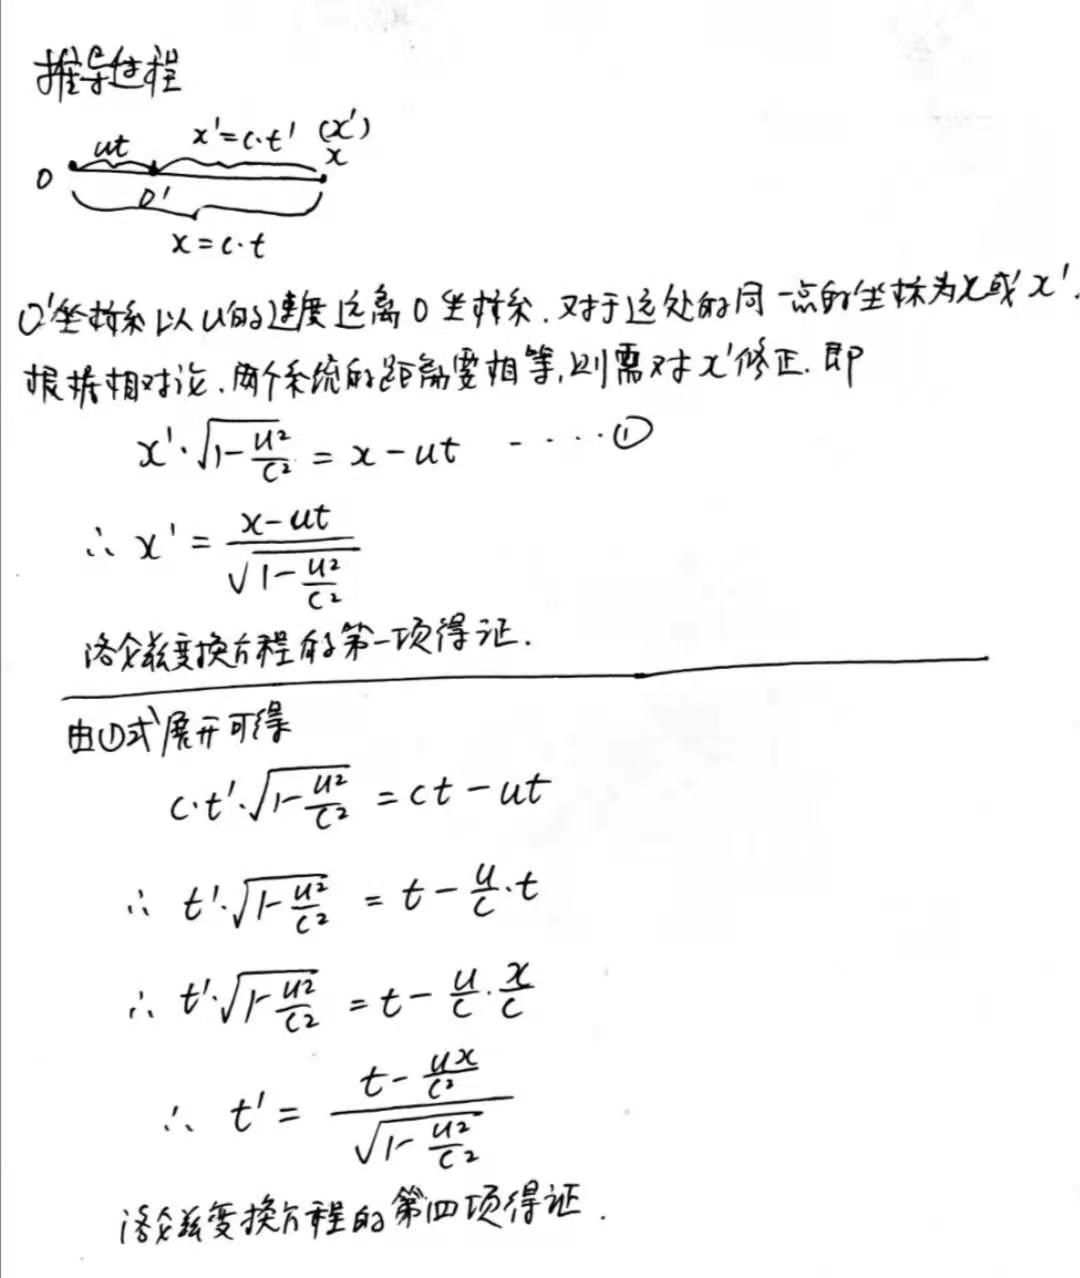 推导过程
ut x'=c·t' (x')
O O' x
x=c·t
O'坐标系以u的速度远离O坐标系.对于远处的同一点的坐标为x或x'.
根据相对论,两个系统的距离要相等,则需对x'修正.即
x'·√(1-u²/c²) = x-ut ·····①
∴ x' = (x-ut)/√(1-u²/c²)
洛伦兹变换方程的第一项得证.
由①式展开可得
c·t'·√(1-u²/c²) = ct-ut
∴ t'·√(1-u²/c²) = t-u/c·t
∴ t'·√(1-u²/c²) = t-u/c·x/c
∴ t' = (t-ux/c²)/√(1-u²/c²)
洛伦兹变换方程的第四项得证.